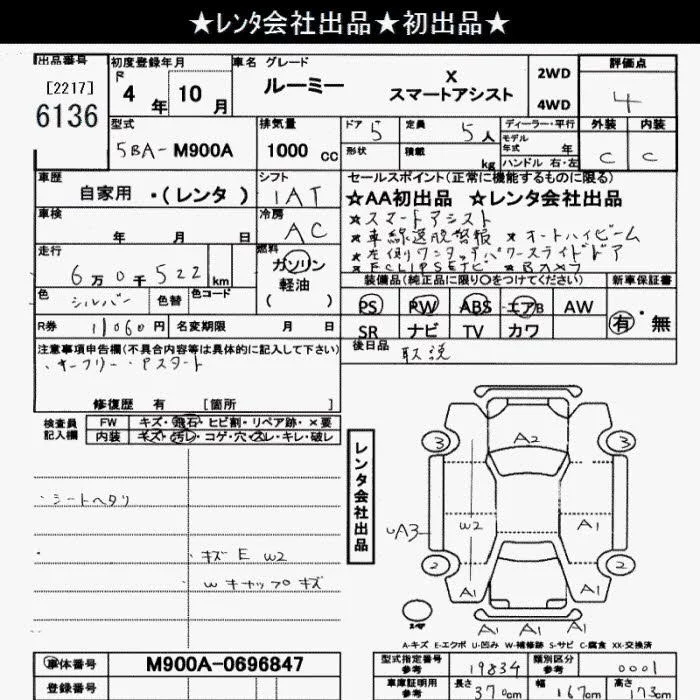 ★レンタ会社出品★初出品★
出品番号 初度登録年月 車名 グレード 評価点
[2217] R 4年 10月 ルーミー X スマートアシスト 2WD 4WD 4
6136
型式 排気量 ドア 5 定員 5人 ディーラー・平行 外装 内装
5BA-M900A 1000cc 形状 積載 kg モデル年式 年 C C
ハンドル 右・左
車歴 シフト セールスポイント(正常に機能するものに限る)
自家用 ・(レンタ) IAT ★AA初出品 ★レンタ会社出品
車検 冷房 ★スマートアシスト
年 月 日 AC ★車線逸脱警報 ★オートハイビーム
走行 燃料 ★左側ワンタッチパワースライドドア
6万0千522km ガソリン 軽油 ( )
装備品(純正品に限り○をつけてください) 新車保証書
色 シルバー 色替 色コード
PS PW ABS エアB AW 有・無
R券 11060円 名変期限 月 日 SR ナビ TV カワ
注意事項申告欄(不具合内容等は具体的に記入して下さい) 後日品 取説
・キーフリー・Pスタート
修復歴 有 [箇所 ]
検査員記入欄 FW キズ・飛石・ヒビ割・リペア跡・×要
内装 キズ・汚レ・コゲ・穴・スレ・キレ・破レ
レンタ会社出品
・シートヘタリ
・キズ E W2
W キャップキズ
3 A2 3
UA3 W2 A1
2 2
A1 A1
A1 A1 A1
A-キズ E-エクボ U-凹み W-補修跡 S-サビ C-腐食 XX-交換済
車体番号 M900A-0696847 型式指定番号 参考 19834 類別区分 参考 0001
登録番号 車庫証明用 参考 長さ 370cm 幅 167cm 高さ 173cm